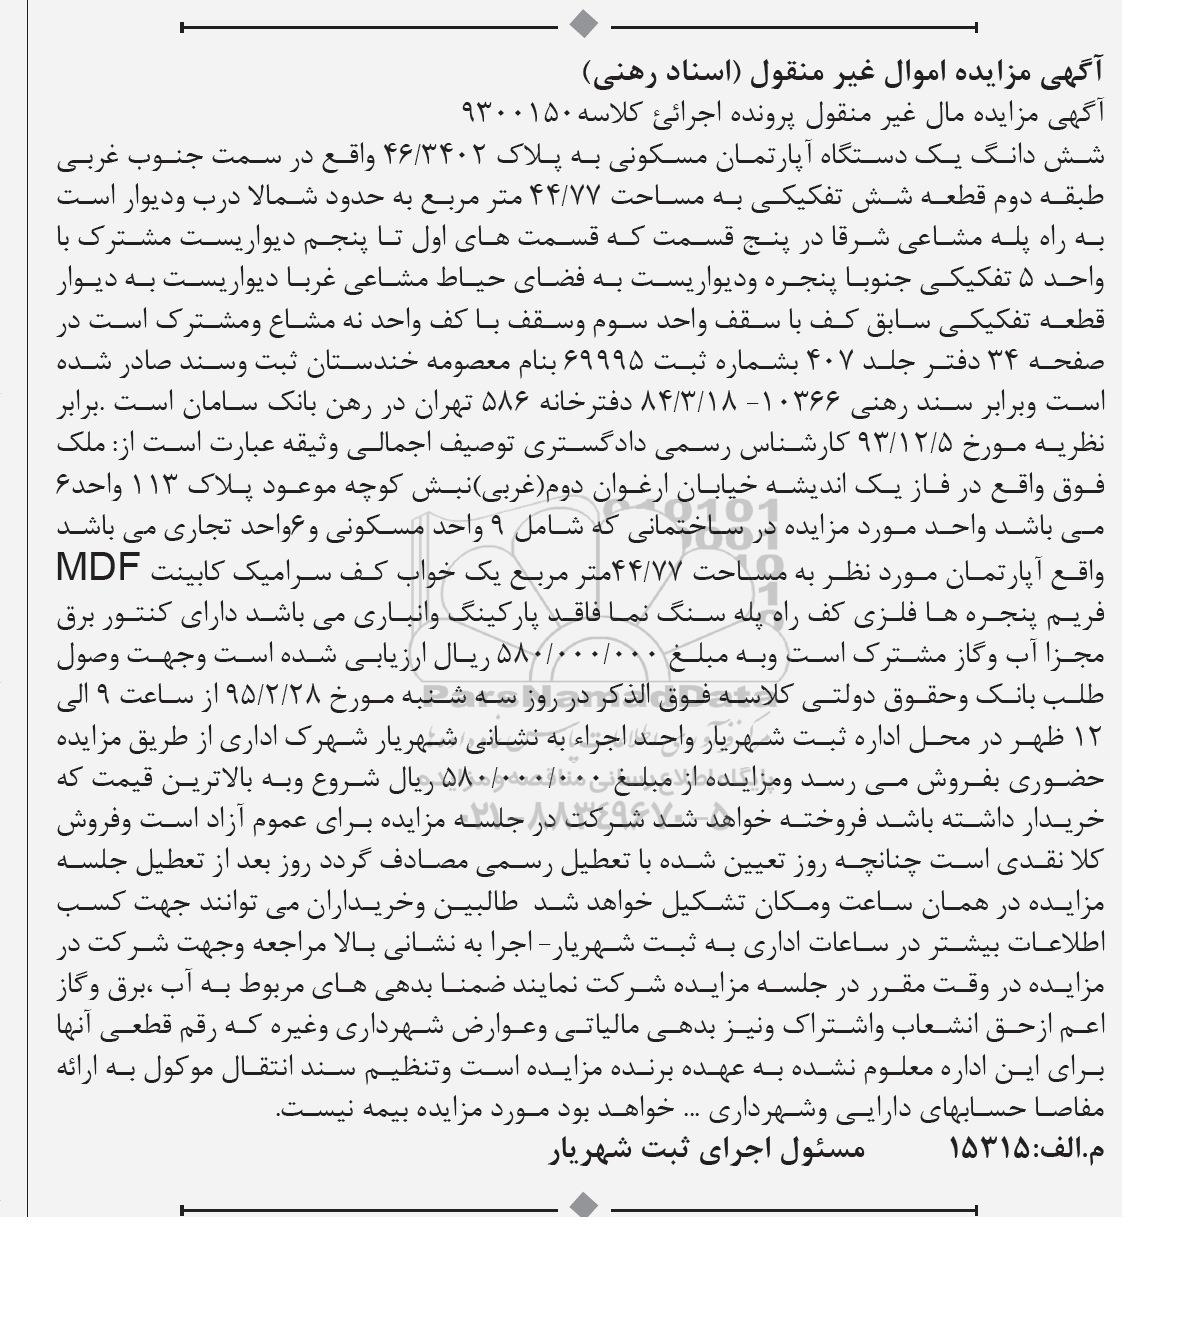 آگهی مزایده اموال غیر منقول (اسناد رهنی)
آگهی مزایده مال غیر منقول پرونده اجرائی کلاسه ۹۳۰۰۱۵۰
شش دانگ یک دستگاه آپارتمان مسکونی به پلاک ۴۶/۳۴۰۲ واقع در سمت جنوب غربی
طبقه دوم قطعه شش تفکیکی به مساحت ۴۴/۷۷ متر مربع به حدود شمالا درب ودیوار است
به راه پله مشاعی شرقا در پنج قسمت که قسمت های اول تا پنجم دیواریست مشترک با
واحد ۵ تفکیکی جنوبا پنجره ودیواریست به فضای حیاط مشاعی غربا دیواریست به دیوار
قطعه تفکیکی سابق کف با سقف واحد سوم وسقف با کف واحد نه مشاع ومشترک است در
صفحه ۳۴ دفتر جلد ۴۰۷ بشماره ثبت ۶۹۹۹۵ بنام معصومه خندستان ثبت وسند صادر شده
است وبرابر سند رهنی ۱۰۳۶۶- ۸۴/۳/۱۸ دفترخانه ۵۸۶ تهران در رهن بانک سامان است .برابر
نظریه مورخ ۹۳/۱۲/۵ کارشناس رسمی دادگستری توصیف اجمالی وثیقه عبارت است از: ملک
فوق واقع در فاز یک اندیشه خیابان ارغوان دوم(غربی)نبش کوچه موعود پلاک ۱۱۳ واحد۶
می باشد واحد مورد مزایده در ساختمانی که شامل ۹ واحد مسکونی و۶واحد تجاری می باشد
واقع آپارتمان مورد نظر به مساحت ۴۴/۷۷متر مربع یک خواب کف سرامیک کابینت MDF
فریم پنجره ها فلزی کف راه پله سنگ نما فاقد پارکینگ وانباری می باشد دارای کنتور برق
مجزا آب وگاز مشترک است وبه مبلغ ۵۸۰/۰۰۰/۰۰۰ ریال ارزیابی شده است وجهت وصول
طلب بانک وحقوق دولتی کلاسه فوق الذکر در روز سه شنبه مورخ ۹۵/۲/۲۸ از ساعت ۹ الی
۱۲ ظهر در محل اداره ثبت شهریار واحد اجراء به نشانی شهریار شهرک اداری از طریق مزایده
حضوری بفروش می رسد ومزایده از مبلغ ۵۸۰/۰۰۰/۰۰۰ ریال شروع وبه بالاترین قیمت که
خریدار داشته باشد فروخته خواهد شد شرکت در جلسه مزایده برای عموم آزاد است وفروش
کلا نقدی است چنانچه روز تعیین شده با تعطیل رسمی مصادف گردد روز بعد از تعطیل جلسه
مزایده در همان ساعت ومکان تشکیل خواهد شد طالبین وخریداران می توانند جهت کسب
اطلاعات بیشتر در ساعات اداری به ثبت شهریار- اجرا به نشانی بالا مراجعه وجهت شرکت در
مزایده در وقت مقرر در جلسه مزایده شرکت نمایند ضمنا بدهی های مربوط به آب ،برق وگاز
اعم ازحق انشعاب واشتراک ونیز بدهی مالیاتی وعوارض شهرداری وغیره که رقم قطعی آنها
برای این اداره معلوم نشده به عهده برنده مزایده است وتنظیم سند انتقال موکول به ارائه
مفاصا حسابهای دارایی وشهرداری ... خواهد بود مورد مزایده بیمه نیست.
م.الف:۱۵۳۱۵ مسئول اجرای ثبت شهریار
ParsNamadData
پایگاه اطلاع رسانی مناقصه و مزایده
۰۲۱-۸۸۳۴۹۶۷۰-۵